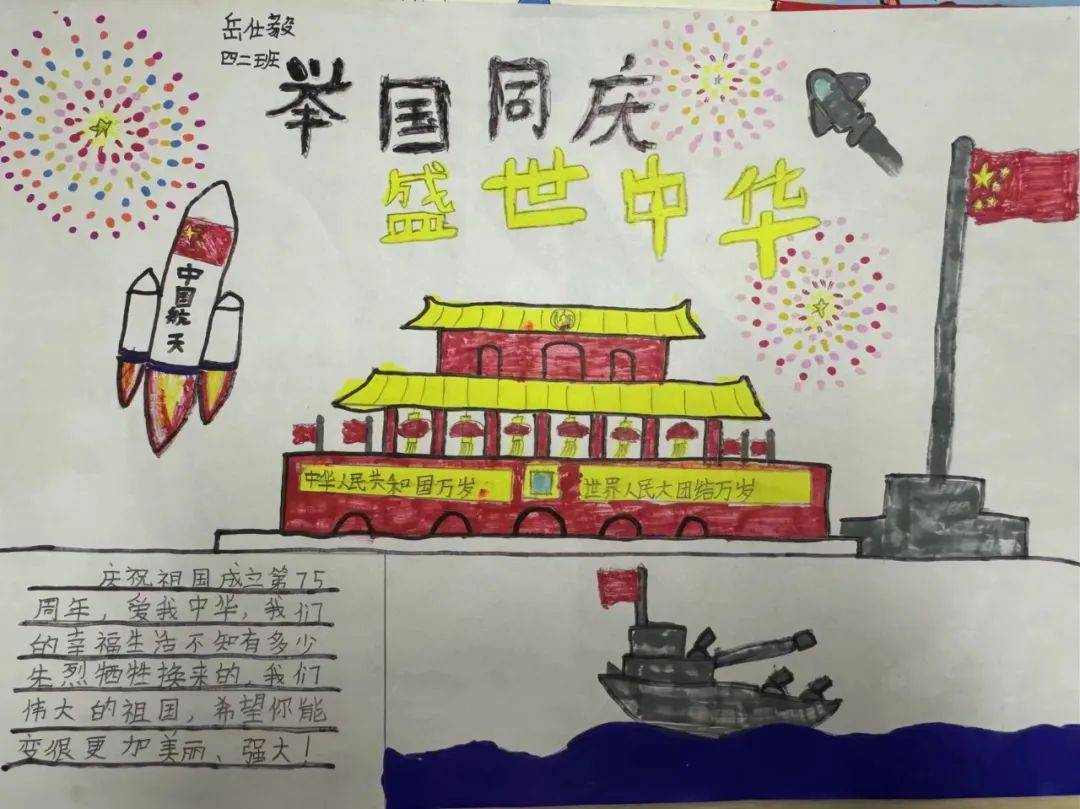 岳仕毅
四二班
举国同庆
盛世中华
中国航天
中华人民共和国万岁
世界人民大团结万岁
庆祝祖国成立第75
周年，爱我中华，我们
的幸福生活不知有多少
先烈牺牲换来的，我们
伟大的祖国，希望你能
变很更加美丽、强大！